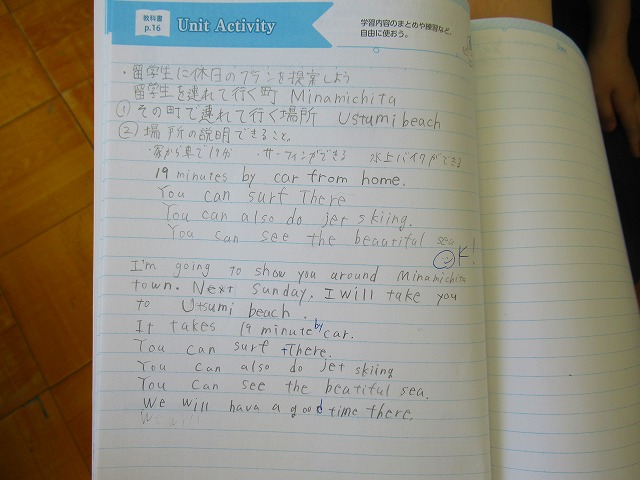 教科書 p.16
Unit Activity
学習内容のまとめや練習など、
自由に使おう。
・留学生に休日のプランを提案しよう
留学生を連れて行く町 Minamichita
① その町で連れて行く場所 Ustumi beach
② 場所の説明できること。
・家から車で19分 ・サーフィンができる 水上バイクができる
19 minutes by car from home.
You can surf There
You can also do jet skiing.
You can see the beautiful sea
OK!
I'm going to show you around Minamichita
town. Next Sunday, I will take you
to Utsumi beach.
It takes 19 minute by car.
You can surf There.
You can also do jet skiing
You can see the beatiful sea.
We will hava a good time there.